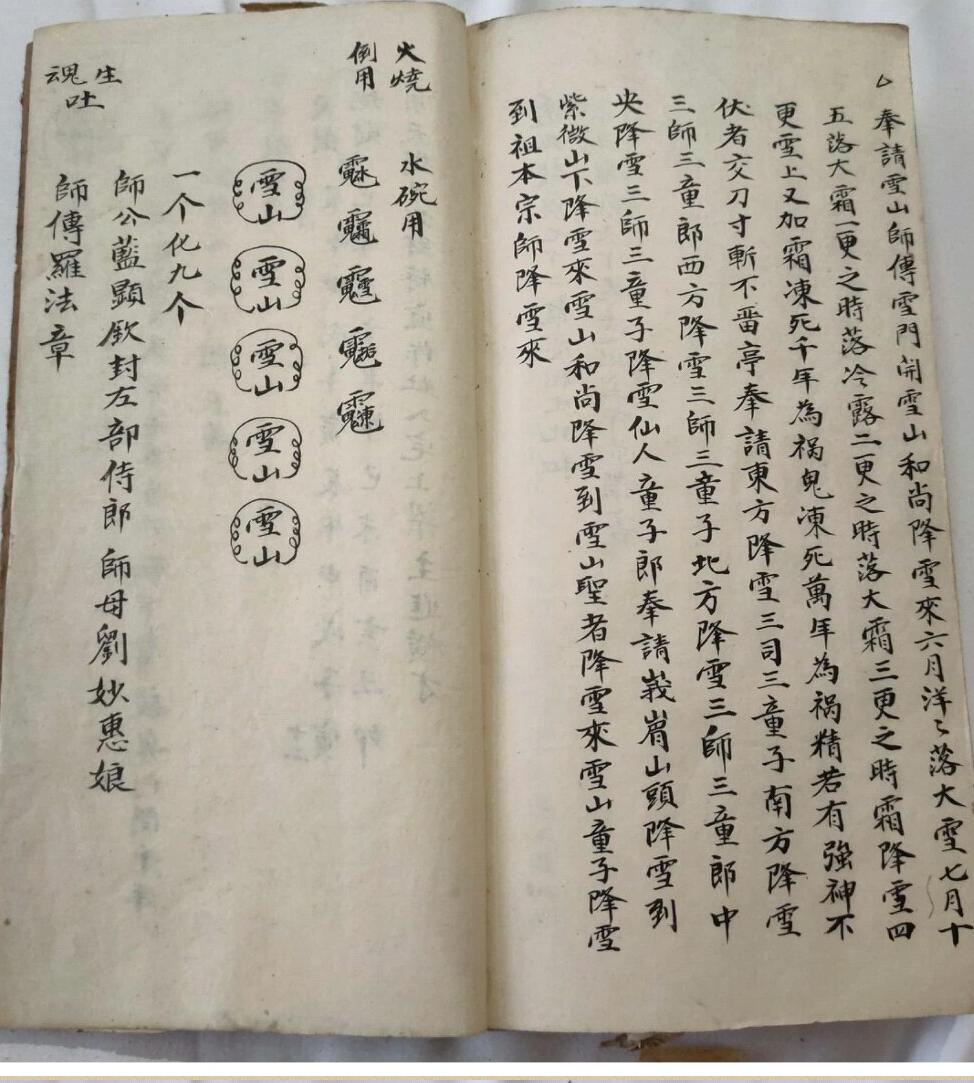 奉請雪山師傳雪門開雪山和尚降雪來六月洋〻落大雪七月十
五落大霜一更之時落冷露二更之時落大霜三更之時霜降雪四
更雪上又加霜凍死千年為禍鬼凍死萬年為禍精若有強神不
伏者交刀寸斬不畱亭奉請東方降雪三司三童子南方降雪
三師三童郎西方降雪三師三童子北方降雪三師三童郎中
央降雪三師三童子降雪仙人童子郎奉請峩眉山頭降雪到
紫微山下降雪來雪山和尚降雪到雪山聖者降雪來雪山童子降雪
到祖本宗師降雪來
火燒 水碗用
倒用
雪山
雪山
雪山
雪山
雪山
一个化九个
師公藍顯欽封左部侍郎師母劉妙惠娘
生魂吐
師傳羅法章